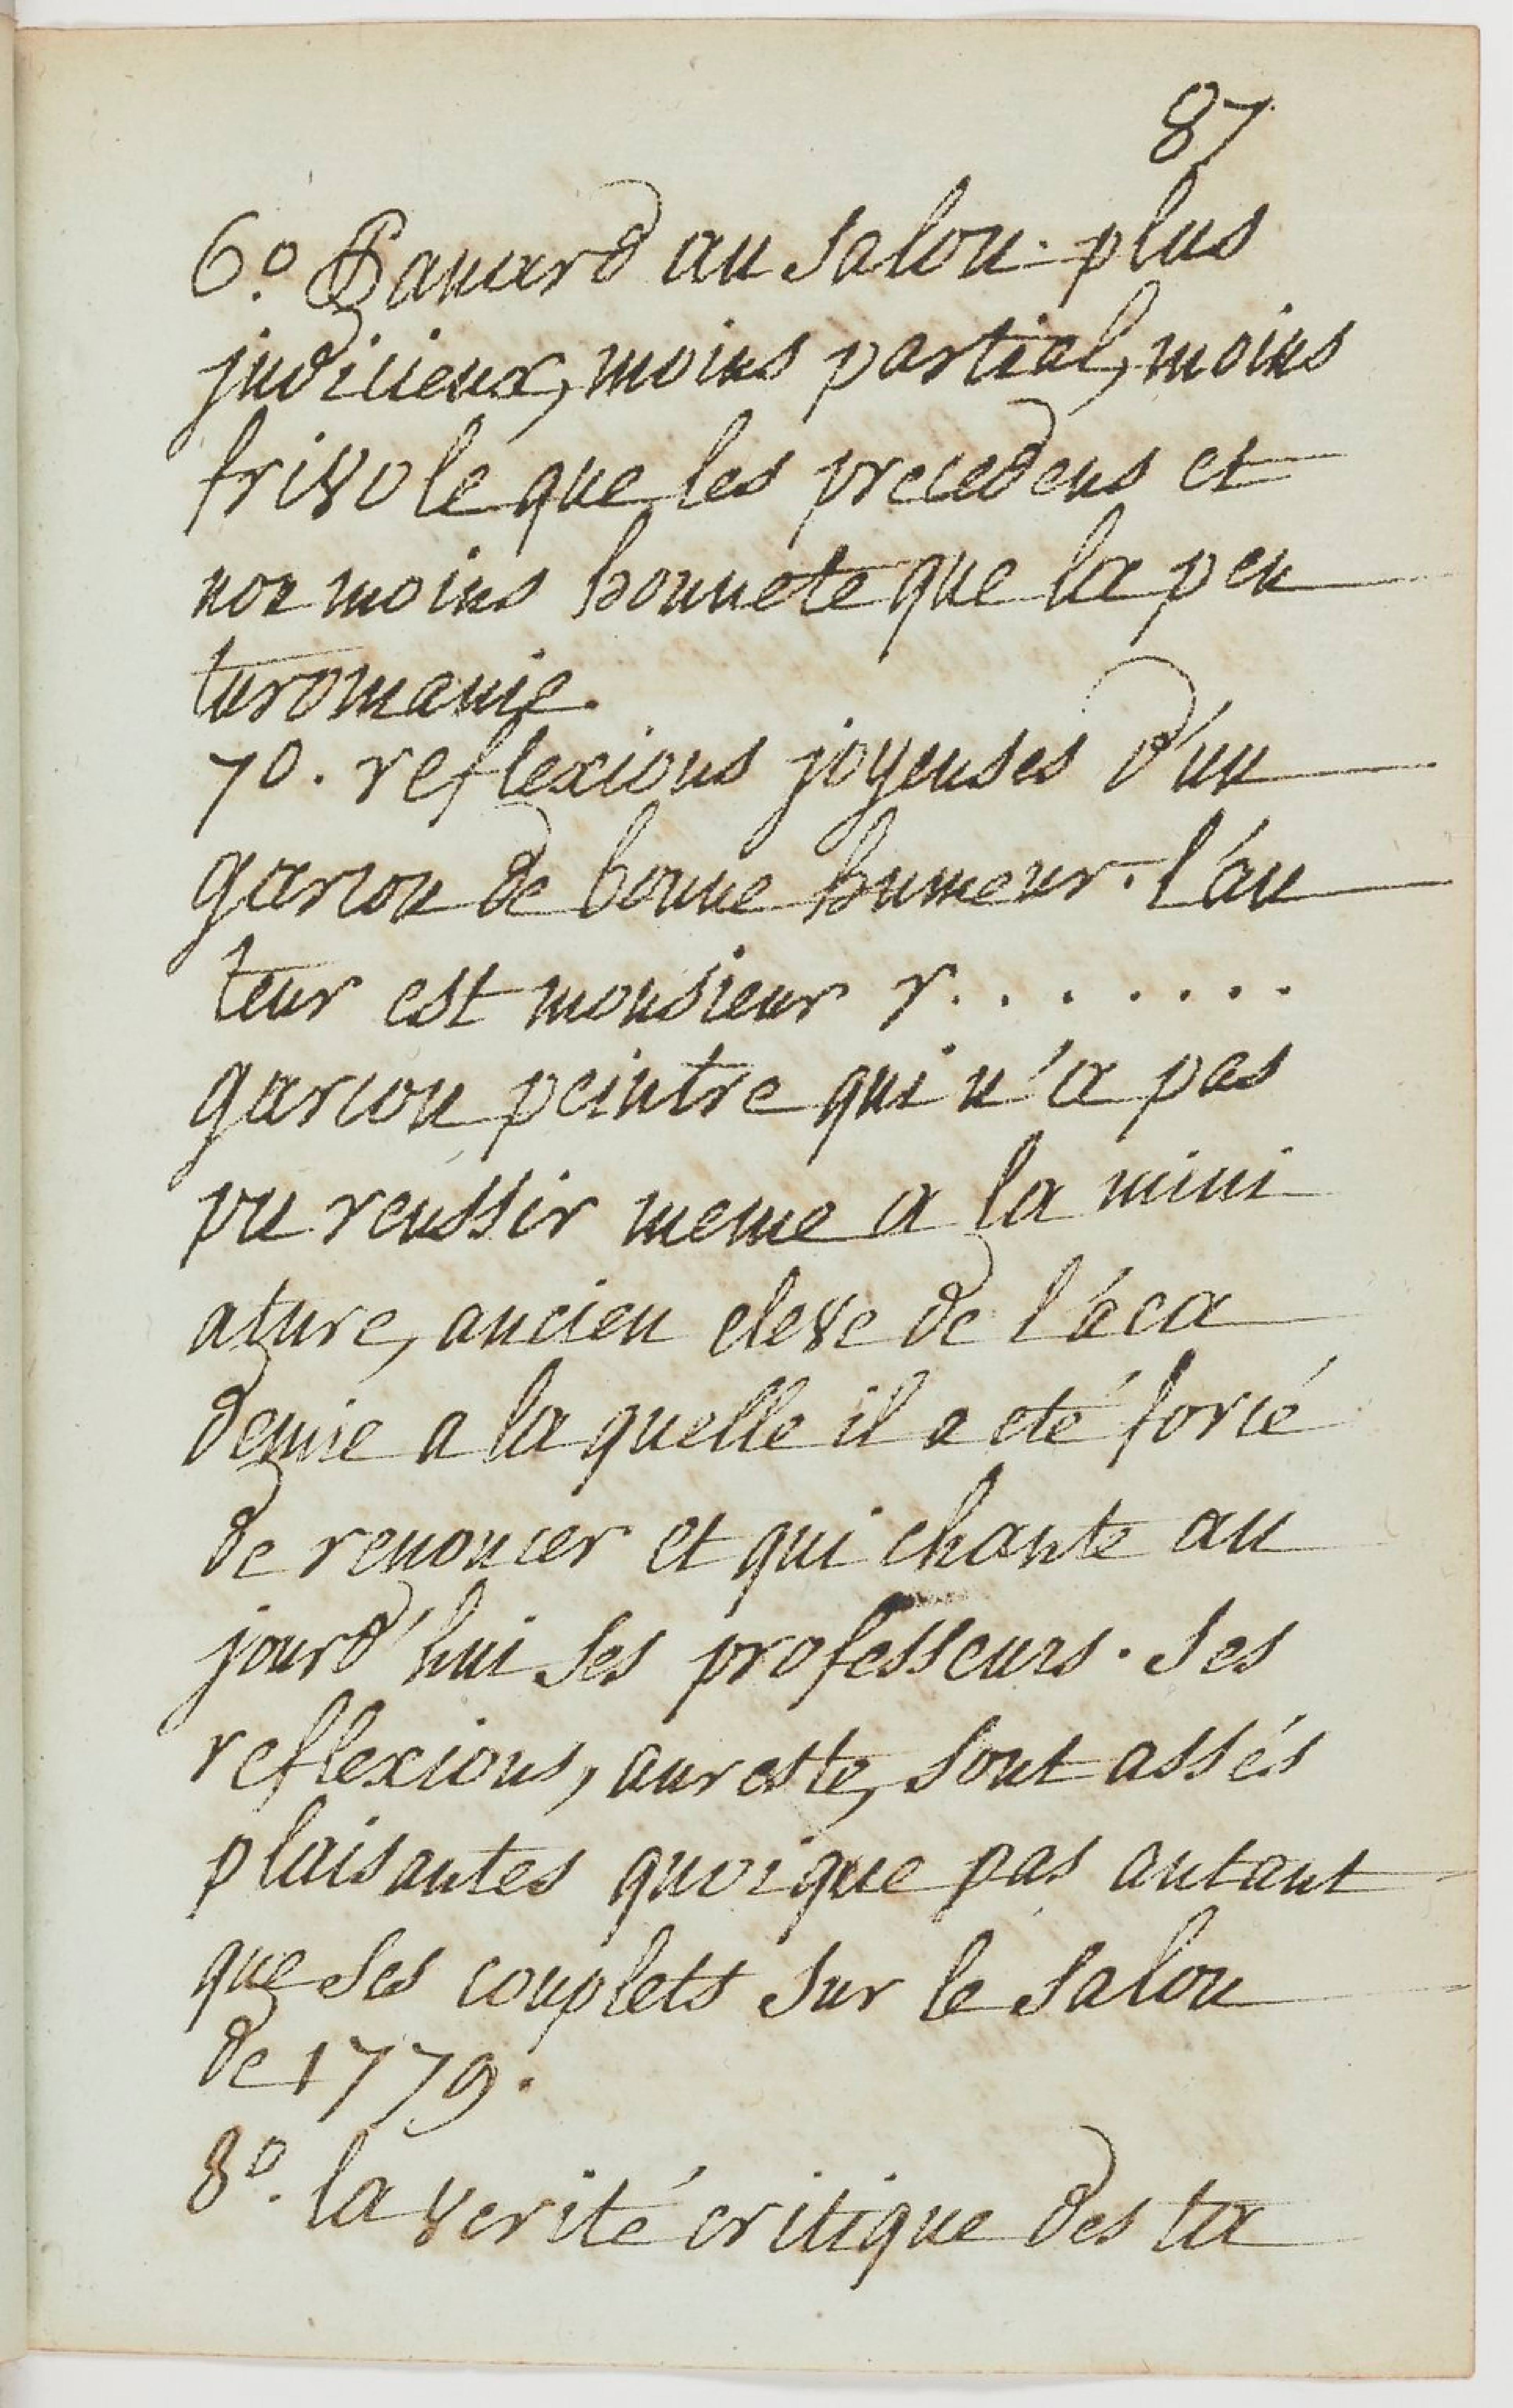 87
6.o Panard au Salon. plus
judicieux, moins partial, moins
frivole que les precedens et
non moins honnete que la pen
turomanie.
7o. reflexions joyeuses d'un
garcon de bonne humeur. l'au
teur est monsieur r. . . . . . .
garcon peintre qui n'a pas
pu reussir meme a la mini
ature, ancien eleve de l'aca
demie a la quelle il a eté forcé
de renoncer et qui chante au
jourd'hui ses professeurs. Ses
reflexions, aureste, sont assés
plaisantes quoique pas autant
que ses couplets sur le Salon
de 1779.
8o. la verité critique des ta